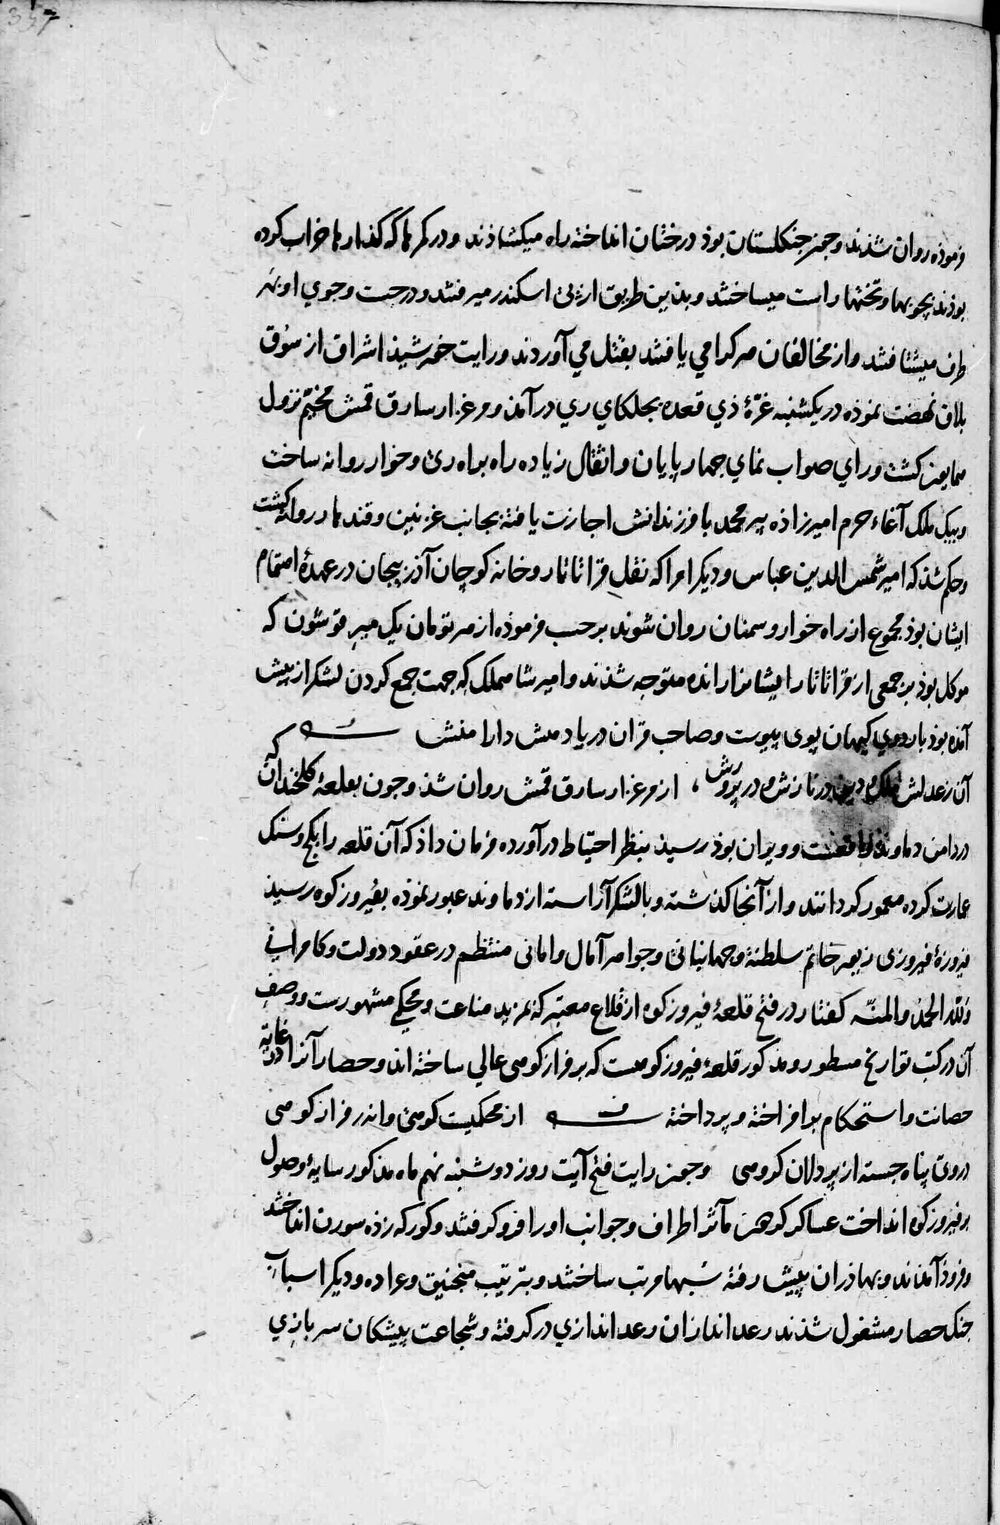 337
فرموذه روان شذند وجون جنکلستان بوذ درختان انداخته راه میکشاذند و در کمرها که کذارها خراب کرده
بوذند بچوبها و تختها راست میساختند و بذین طریق از پی اسکندر میرفتند و در جست و جوی او بهر
طرف میشتافتند و از مخالفان هر کرا می یافتند بقتل می آوردند و رایت خورشیذ اشراق از سوق
بلاق نهضت نموذه در یکشنبه غرّهٔ ذی قعده بجلکای ری در آمذ و مرغزار سارق قمش مخیّم نزول
همایون کشت و رای صواب نمای چهارپایان و اثقال زیاده راه براه ری و خوار روانه ساخت
و بیک ملک آغاء حرم امیرزاذه پیر محمد با فرزندانش اجازت یافته بجانب غزنین و قندهار روانه کشت
و حکم شذ که امیر شمس الدین عباس و دیکر امرا که نقل قراتاتار و خانه کوچان آذربیجان در عهدهٔ اهتمام
ایشان بوذ مجموع از راه خوار و سمنان روان شوند بر حسب فرموذه از هر تومان یک میر قوشون که
موکل بوذ بر جمعی از قراتاتار ایشانرا رانده متوجه شذند و امیر شاهملک که جهت جمع کردن لشکر از پیش
آمذه بوذ باردوی کیهان پوی پیوست و صاحب قران دریا دهش دارا منش
آن زعدلش ملک و دین در نازش و در پرورش ، از مرغزار سارق قمش روان شذ و چون بقلعهٔ کلخندان که
در دامن دماوند واقعست و ویران بوذ رسیذ بنظر احتیاط در آورده فرمان داذ که آن قلعه را بکچ و سنک
عمارت کرده معمور کردانند و از آنجا کذشته و با لشکر آراسته از دماوند عبور نموذه بفیروزکوه رسیذ
فیروزهٔ فیروزی زیور خاتم سلطنة و جهانبانی و جواهر آمال و امانی منتظم در عقود دولت و کامرانی
وللّه الحمذ والمنّه کفتار در فتح قلعهٔ فیروزکوه از قلاع معتبر که بمزید مناعت و محکمی مشهورست و وصف
آن در کتب تواریخ مسطور و مذکور قلعهٔ فیروزکوهست که بر فراز کوهی عالی ساخته اند و حصار آنرا در غایة
حصانت و استحکام بر افراخته و پرداخته از محکمیست کوهی و اندر فراز کوهی
در وی پناه جسته از پر دلان کروهی وجون رایت فتح آیت روز دوشنبه نهم ماه مذکور سایهٔ وصول
بر فیروزکوه انداخت عساکر کردون مآثر اطراف و جوانب او را فرو کرفتند و کورکه زده سورن انداختند
و فروذ آمذند و بهاذران پیش رفته سیبها مرتب ساختند و بترتیب منجنیق و عراده و دیکر اسباب
جنک حصار مشغول شذند رعد اندازان رعد اندازی در کرفته و شجاعت پیشکان سربازی